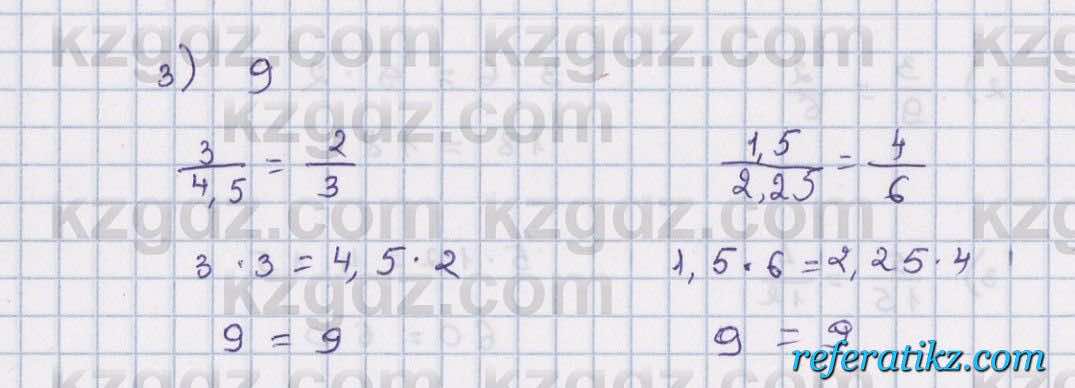 kzgdz.com kzgdz.com kzgdz.com
3) 9
kzgdz.com
3/4,5 = 2/3 1,5/2,25 = 4/6
kzgdz.com kzgdz.com
3 · 3 = 4,5 · 2 1,5 · 6 = 2,25 · 4
kzgdz.com
9 = 9 9 = 9
referatikz.com